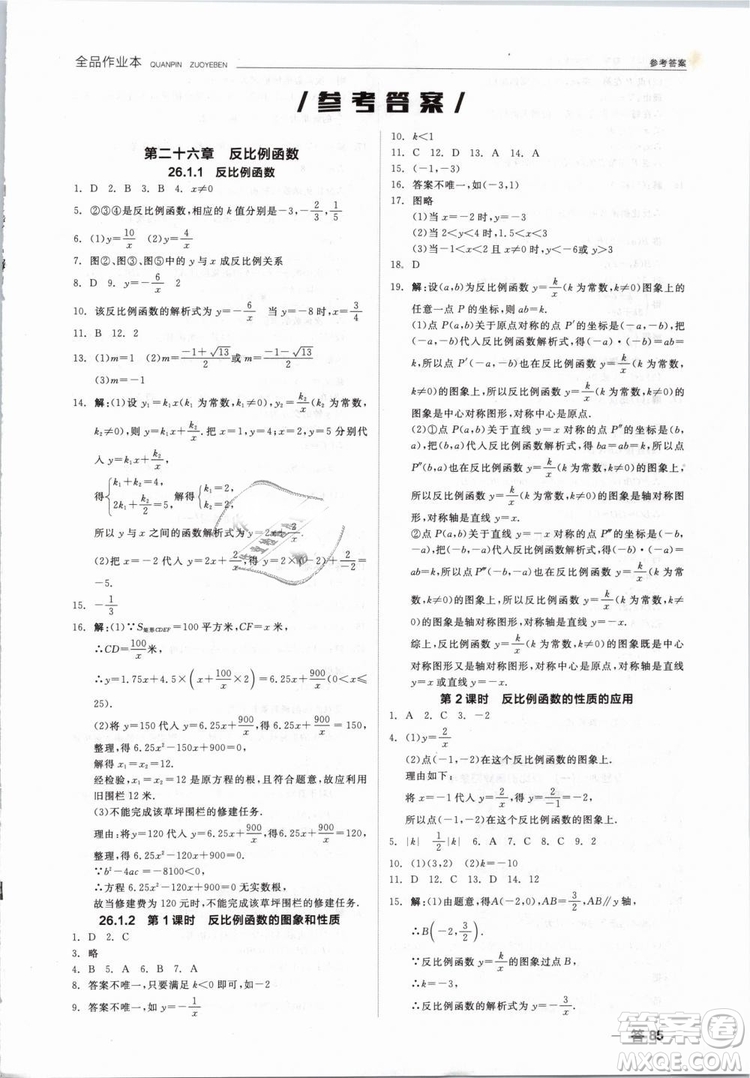 全品作业本 QUANPIN ZUOYEBEN
参考答案
参考答案
第二十六章 反比例函数
26.1.1 反比例函数
1. D 2. B 3. B 4. x≠0
5. ②③④是反比例函数,相应的 k 值分别是-3,-2/3,1/3
6. (1)y=10/x (2)y=4/x
7. 图②、图③、图⑤中的 y 与 x 成反比例关系
8. D 9. y=-6/x 2
10. 该反比例函数的解析式为 y=-6/x 当 y=-8时,x=3/4
11. B 12. 2
13. (1)m=1 (2)m=(-1+√13)/2或 m=(-1-√13)/2
(3)m=-1
14. 解:(1)设 y₁=k₁x(k₁为常数,k₁≠0),y₂=k₂/x(k₂为常数,
k₂≠0),则 y=k₁x+k₂/x.把 x=1,y=4;x=2,y=5分别代
入 y=k₁x+k₂/x,
得{k₁+k₂=4, 2k₁+k₂/2=5, 解得{k₁=2, k₂=2,
所以 y 与 x 之间的函数解析式为 y=2x+2/x.
(2)把 x=-2代入 y=2x+2/x,得 y=2×(-2)+2/-2=
-5.
15. -1/3
16. 解:(1)∵S矩形CDEF=100平方米,CF=x米,
∴CD=100/x米,
∴y=1.75x+4.5×(x+100/x+100/x×2)=6.25x+900/x(0<x≤
25).
(2)将 y=150代入 y=6.25x+900/x,得 6.25x+900/x=150,
整理,得 6.25x²-150x+900=0,
解得 x₁=x₂=12.
经检验,x=12是原方程的根,且符合题意,故应利用
旧围栏 12 米.
(3)6.25x+900/x不能完成该草坪围栏的修建任务.
理由:将 y=120代入 y=6.25x+900/x,得 6.25x+900/x=120,
整理,得 6.25x²-120x+900=0.
∵b²-4ac=-8100<0,
∴方程 6.25x²-120x+900=0无实数根,
故当修建费为120元时,不能完成该草坪围栏的修建任务.
26.1.2 第1课时 反比例函数的图象和性质
1. D 2. C
3. 略
4. B 5. A 6. A 7. A
8. 答案不唯一,只要满足 k<0即可,如-2
9. 答案不唯一,如 y=-1/x
10. k<1
11. C 12. D 13. A 14. A
15. (-1,-3)
16. 答案不唯一,如(-3,1)
17. 图略
(1)当 x=-2时,y=-3
(2)当 2<y<3时,2<x<3
(3)当-1<x<2时,y<-6或 y>3
18. D
19. 解:设(a,b)是反比例函数 y=k/x(k 为常数,k≠0)图象上的
任意一点 P 的坐标,则 ab=k.
(1)点 P(a,b)关于原点对称的点 P′的坐标是(-a,-b),把
P′(-a,-b)代入反比例函数解析式,得(-a)·(-b)=ab=k,
所以 P′也在反比例函数 y=k/x(k 为常数,k≠0)的图
象上,所以反比例函数 y=k/x(k 为常数,k≠0)的
图象是中心对称图形,对称中心是原点.
(2)①点 P(a,b)关于直线 y=x对称的点 P″的坐标为(b,
a),把 P″(b,a)代入反比例函数解析式,得 ba=ab=k,所以
P″(b,a)也在反比例函数 y=k/x(k 为常数,k≠0)的图象上,
所以反比例函数 y=k/x(k 为常数,k≠0)的图象是轴对称
图形,对称轴是直线 y=x.
②点 P(a,b)关于直线 y=-x对称的点 P‴的坐标是(-b,
-a),把 P‴(-b,-a)代入反比例函数解析式,得(-b)·
(-a)=ab=k,所以 P‴(-b,-a)也在反比例函数 y=k/x
(k 为常数,k≠0)的图象上,所以反比例函数 y=k/x(k 为常
数,k≠0)的图象是轴对称图形,对称轴是直线 y=-x.
综上,反比例函数 y=k/x(k 为常数,k≠0)的图象既是中心
对称图形又是轴对称图形,对称轴是直线 y=x和直线 y=-x.
第2课时 反比例函数的性质的应用
1. A 2. C 3. -2
4. (1)y=2/x
(2)点(-1,-2)在这个反比例函数的图象上.
理由如下:
把 x=-1代入 y=2/x,得 y=2/-1=-2,
所以点(-1,-2)在这个反比例函数的图象上.
5. |k| 1/2|k| 6. A 7. C 8. C 9. 2
10. (1)(3,2) (2)k=-10
11. D 12. D 13. A 14. 12
15. 解:(1)由题意,得 A(-2,0),AB∥y轴,
∴B(-2,3/2).
∵反比例函数 y=k/x的图象过点 B(-2,3/2),
∴k=-3,
∴反比例函数的解析式为 y=-3/x.
答 85
答案圈
MXQE.COM